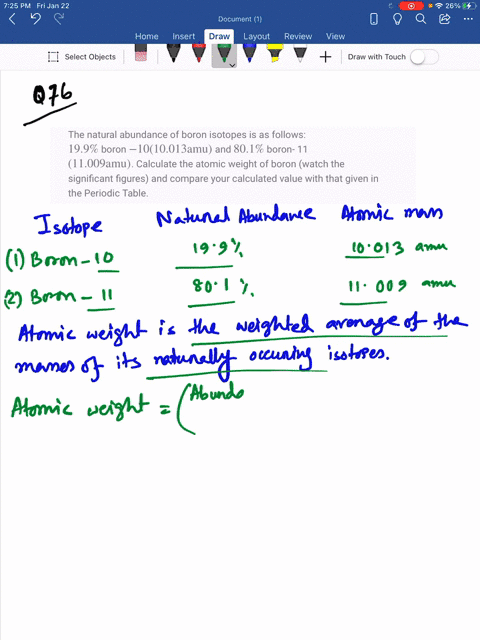 7:25 PM Fri Jan 22
26%
Document (1)
Home Insert Draw Layout Review View
Select Objects
Draw with Touch
Q76
The natural abundance of boron isotopes is as follows:
19.9% boron −10(10.013amu) and 80.1% boron- 11
(11.009amu). Calculate the atomic weight of boron (watch the
significant figures) and compare your calculated value with that given in
the Periodic Table.
Isotope Natural Abundance Atomic mass
(1) Boron - 10 19.9% 10.013 amu
(2) Boron - 11 80.1 % 11.009 amu
Atomic weight is the weighted average of the
masses of its naturally occuring isotopes.
Atomic weight = (Abunda